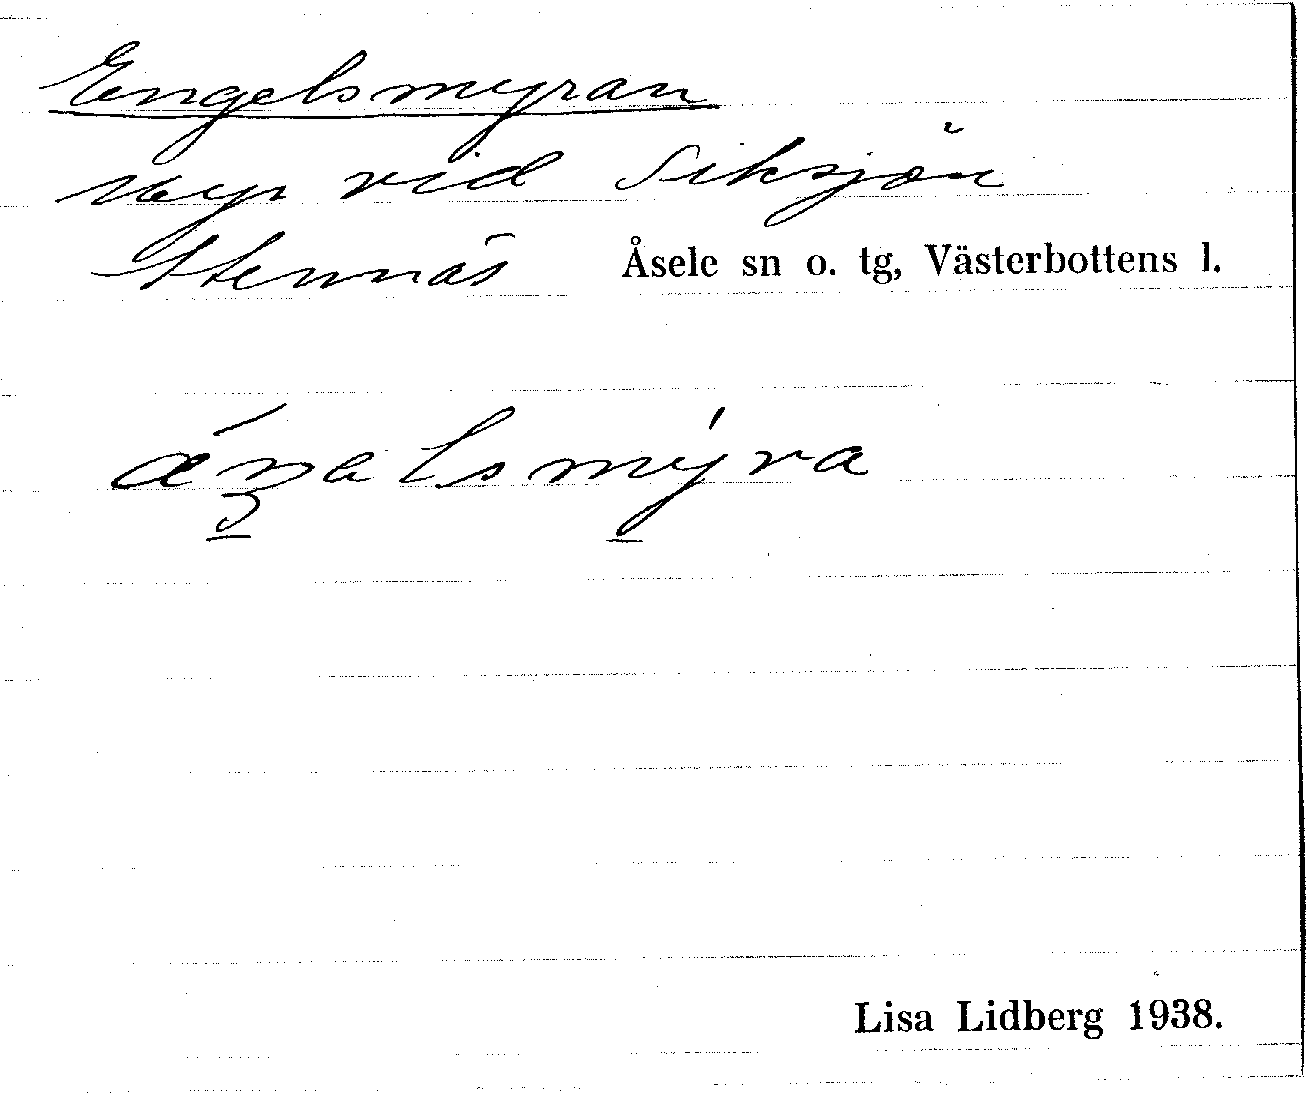 Engelsmyran
myr vid Siksjön
Stennäs Åsele sn o. tg, Västerbottens l.
Lisa Lidberg 1938.